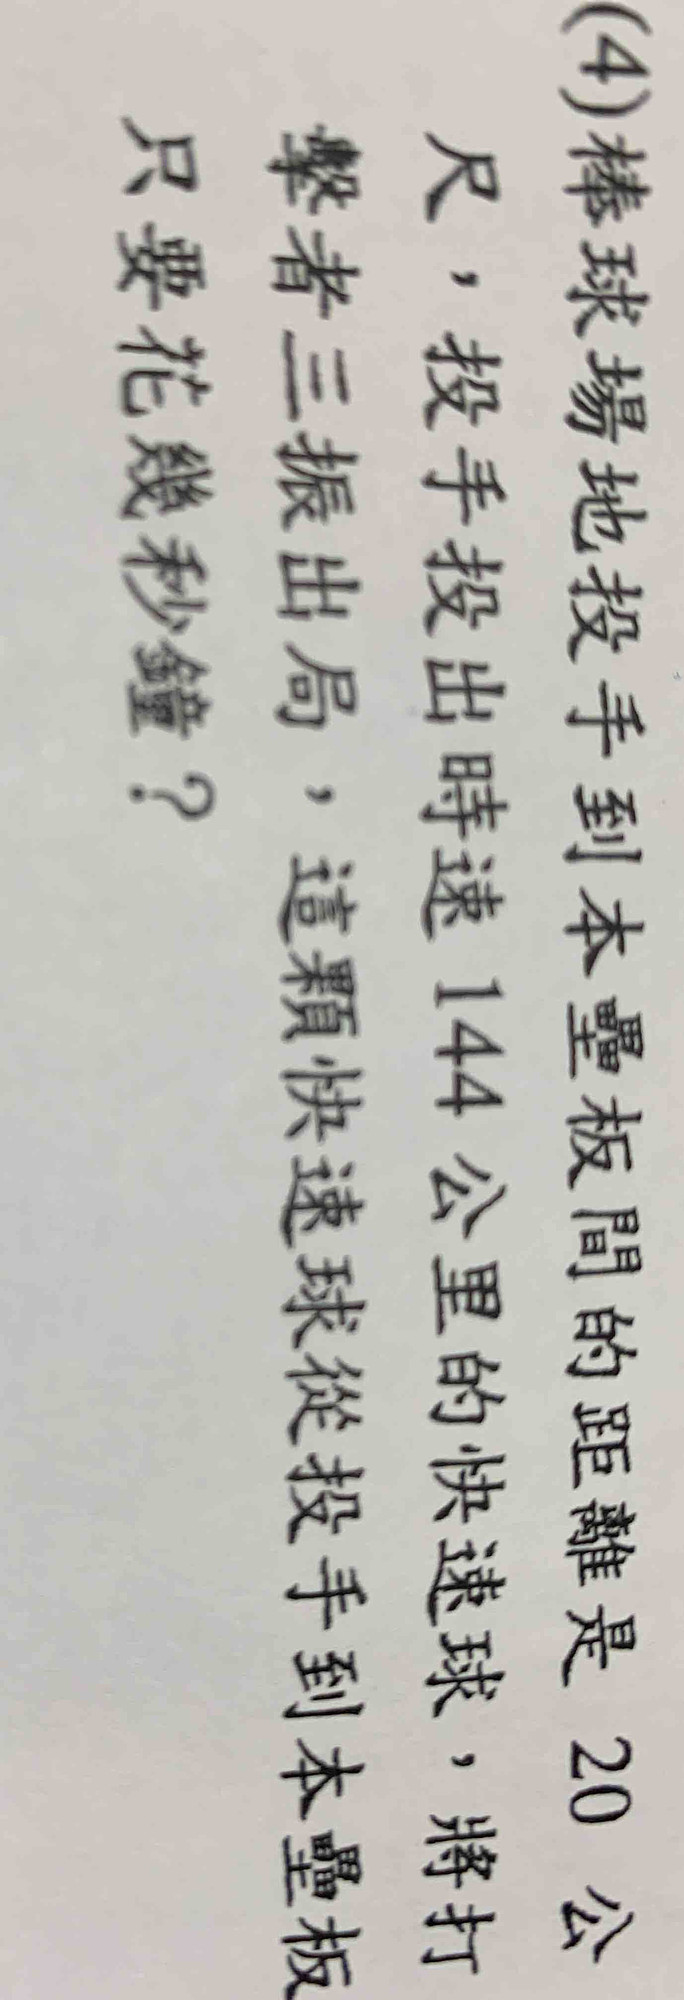 (4)棒球場地投手到本壘板間的距離是 20 公
尺，投手投出時速 144 公里的快速球，將打
擊者三振出局，這顆快速球從投手到本壘板
只要花幾秒鐘？